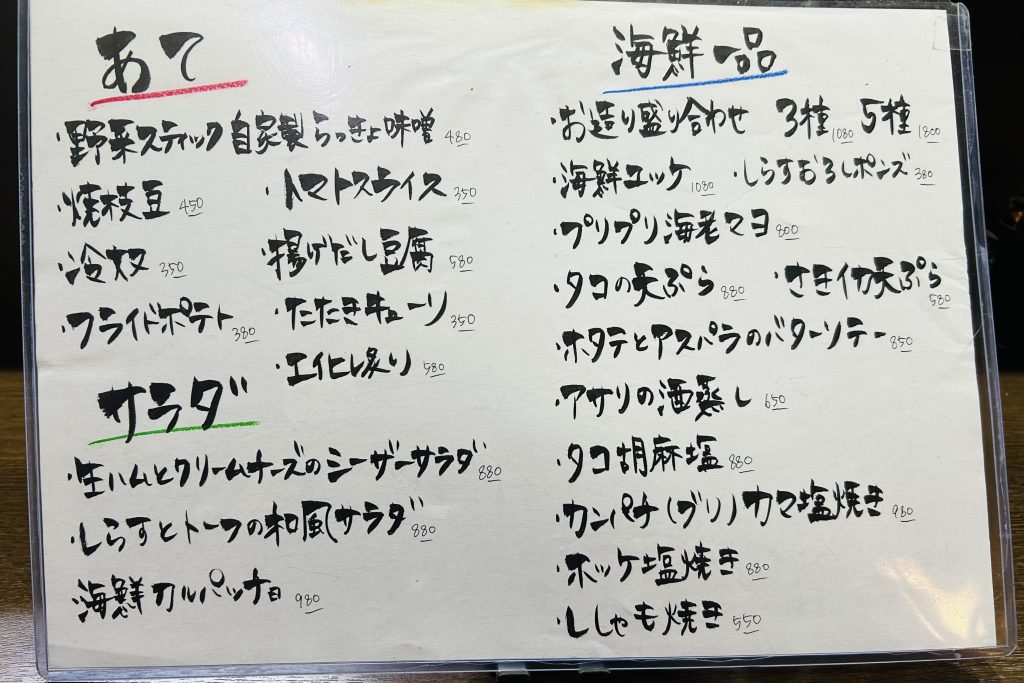 あて
・野菜スティック 自家製らっきょ味噌 480
・焼枝豆 450 ・トマトスライス 350
・冷奴 350 ・揚げだし豆腐 580
・フライドポテト 380 ・たたきキューリ 350
・エイヒレ炙り 580
サラダ
・生ハムとクリームチーズのシーザーサラダ 880
・しらすとトーフの和風サラダ 880
・海鮮カルパッチョ 980
海鮮一品
・お造り盛り合わせ 3種 1080 5種 1800
・海鮮ユッケ 1080 ・しらすおろしポンズ 380
・プリプリ海老マヨ 800
・タコの天ぷら 880 ・さきイカ天ぷら 580
・ホタテとアスパラのバターソテー 850
・アサリの酒蒸し 650
・タコ胡麻塩 880
・カンパチ(ブリ)カマ塩焼き 980
・ホッケ塩焼き 880
・ししゃも焼き 550